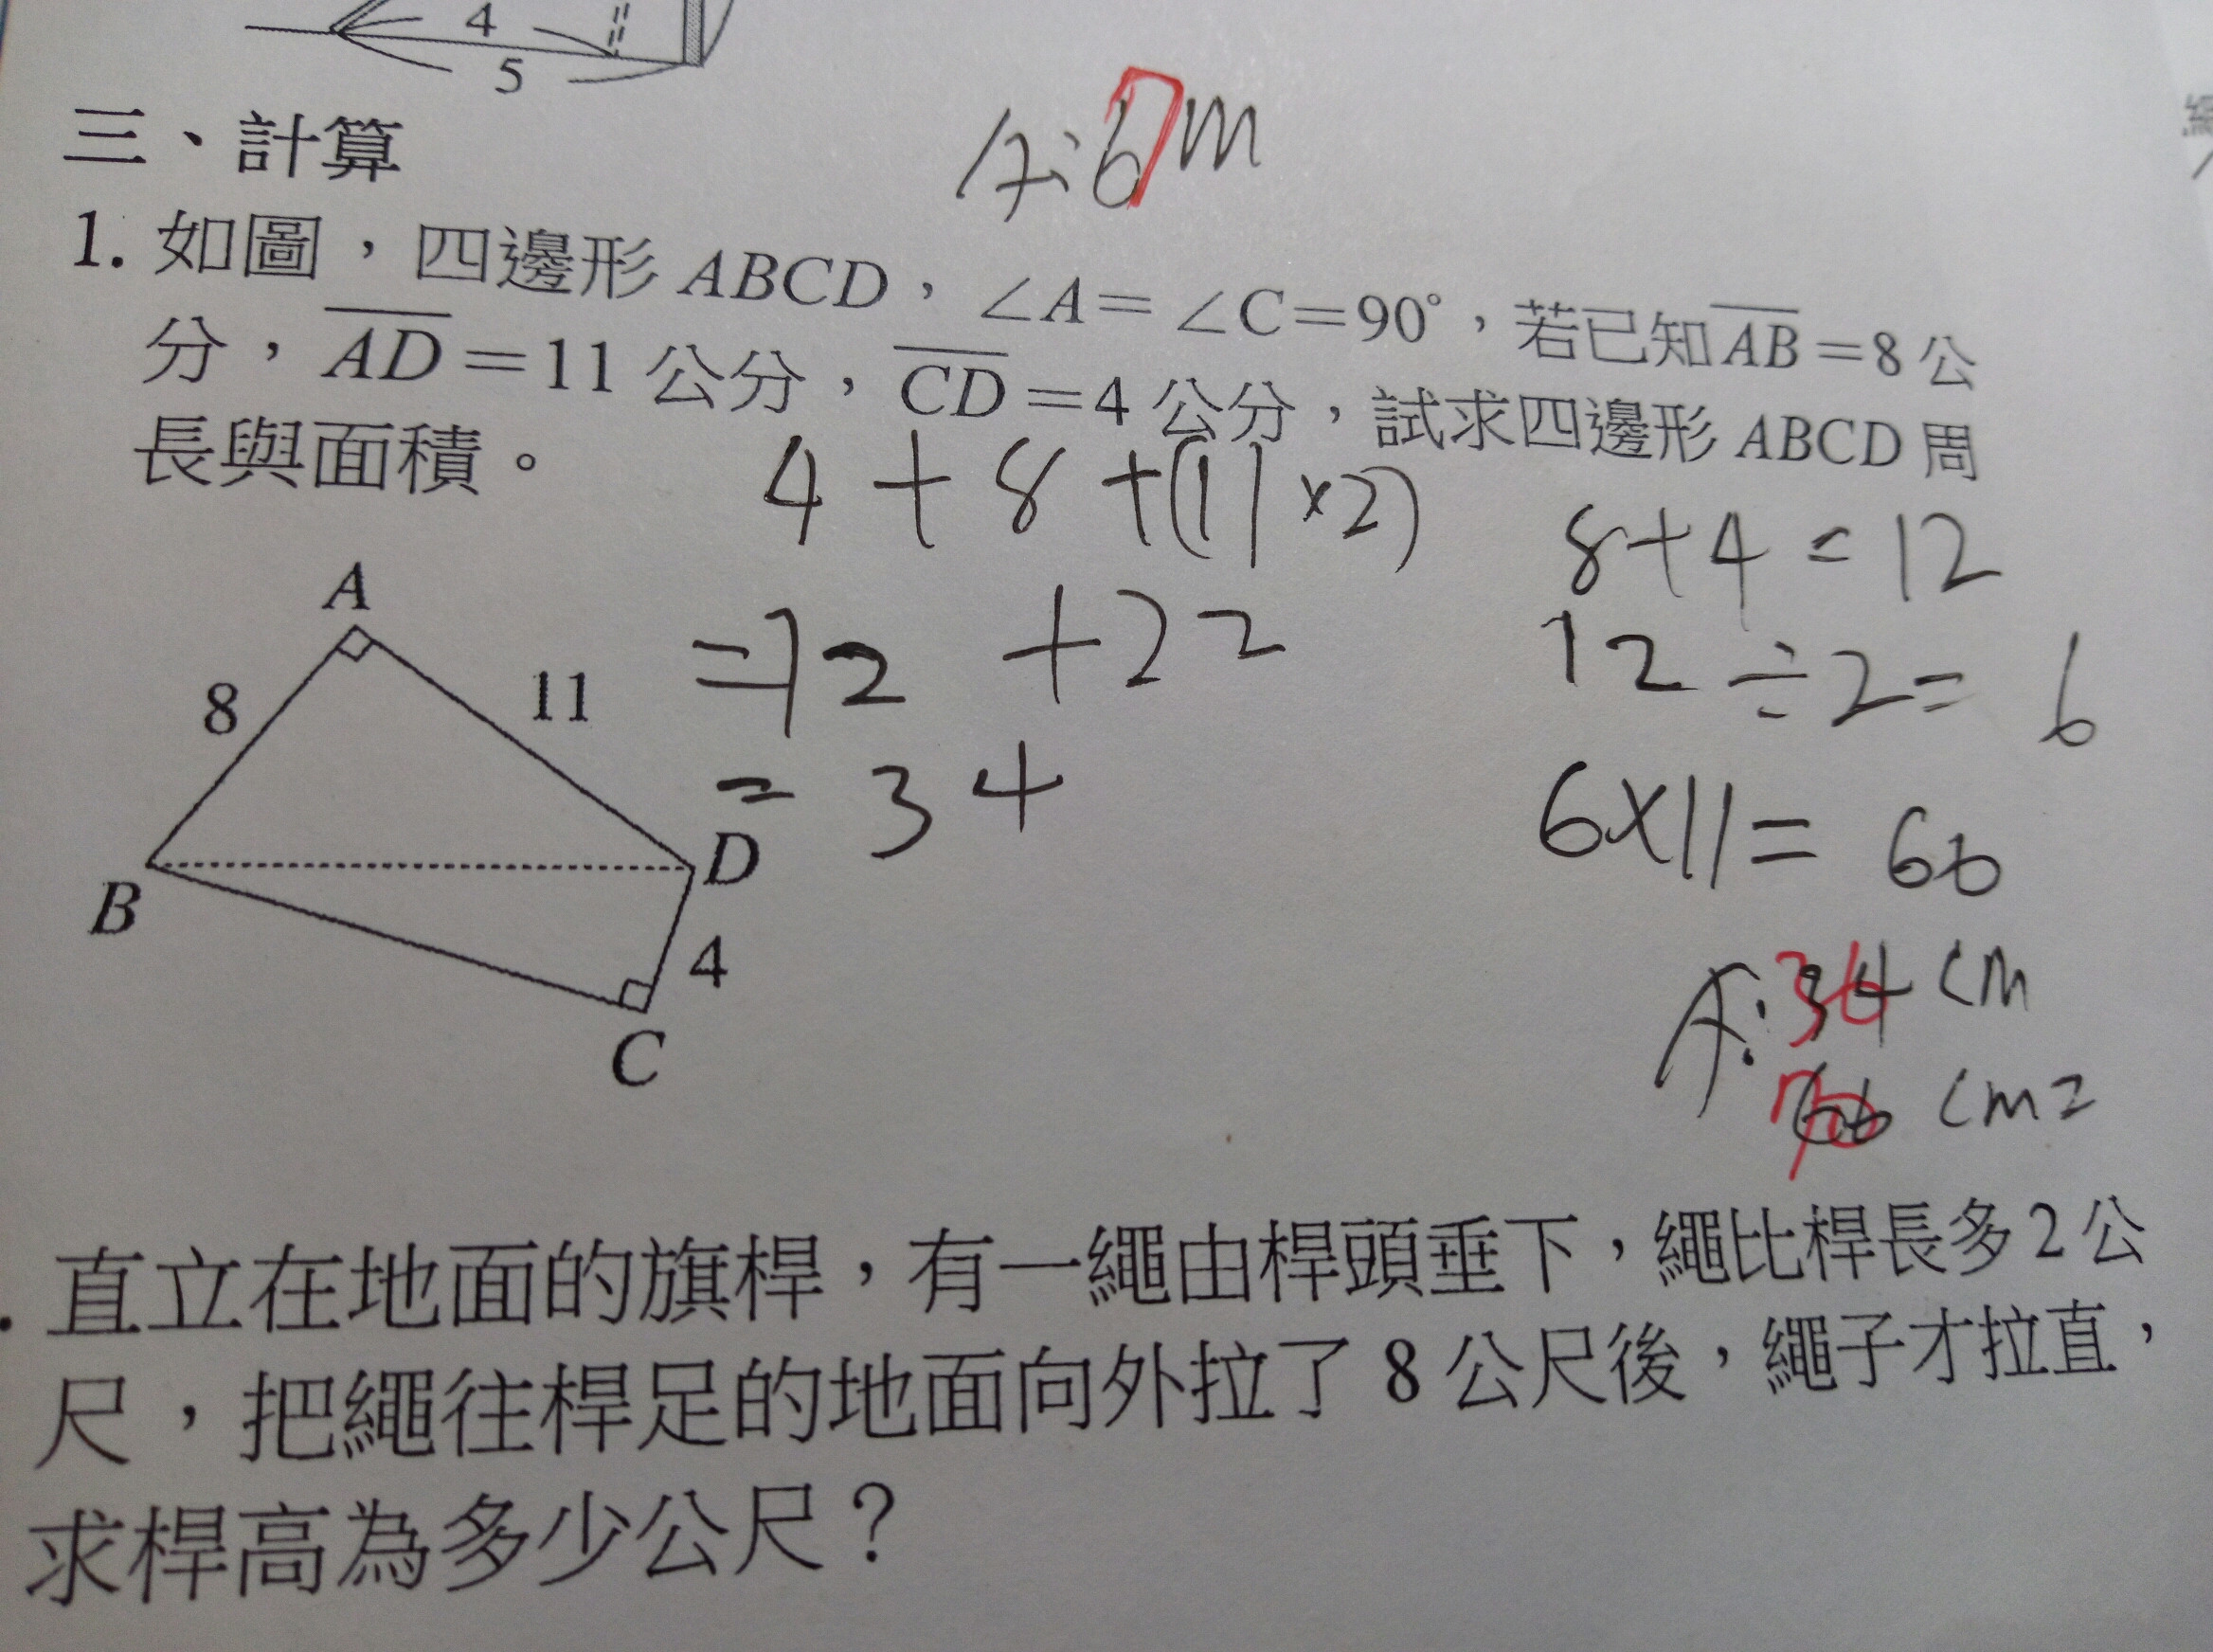 4
5
A:6 7 m
三、計算
1. 如圖，四邊形 ABCD，∠A=∠C=90°，若已知AB=8公
分，AD=11 公分，CD=4 公分，試求四邊形 ABCD 周
長與面積。
4+8+(11×2)
=12+22
=34
8+4=12
12÷2=6
6×11=66
A:34 36 cm
66 70 cm2
A
8
11
B
D
4
C
. 直立在地面的旗桿，有一繩由桿頭垂下，繩比桿長多2公
尺，把繩往桿足的地面向外拉了 8 公尺後，繩子才拉直，
求桿高為多少公尺？